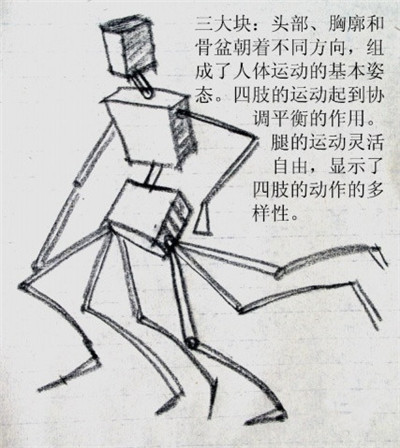 三大块：头部、胸廓和
骨盆朝着不同方向，组
成了人体运动的基本姿
态。四肢的运动起到协
调平衡的作用。
腿的运动灵活
自由，显示了
四肢的动作的多
样性。